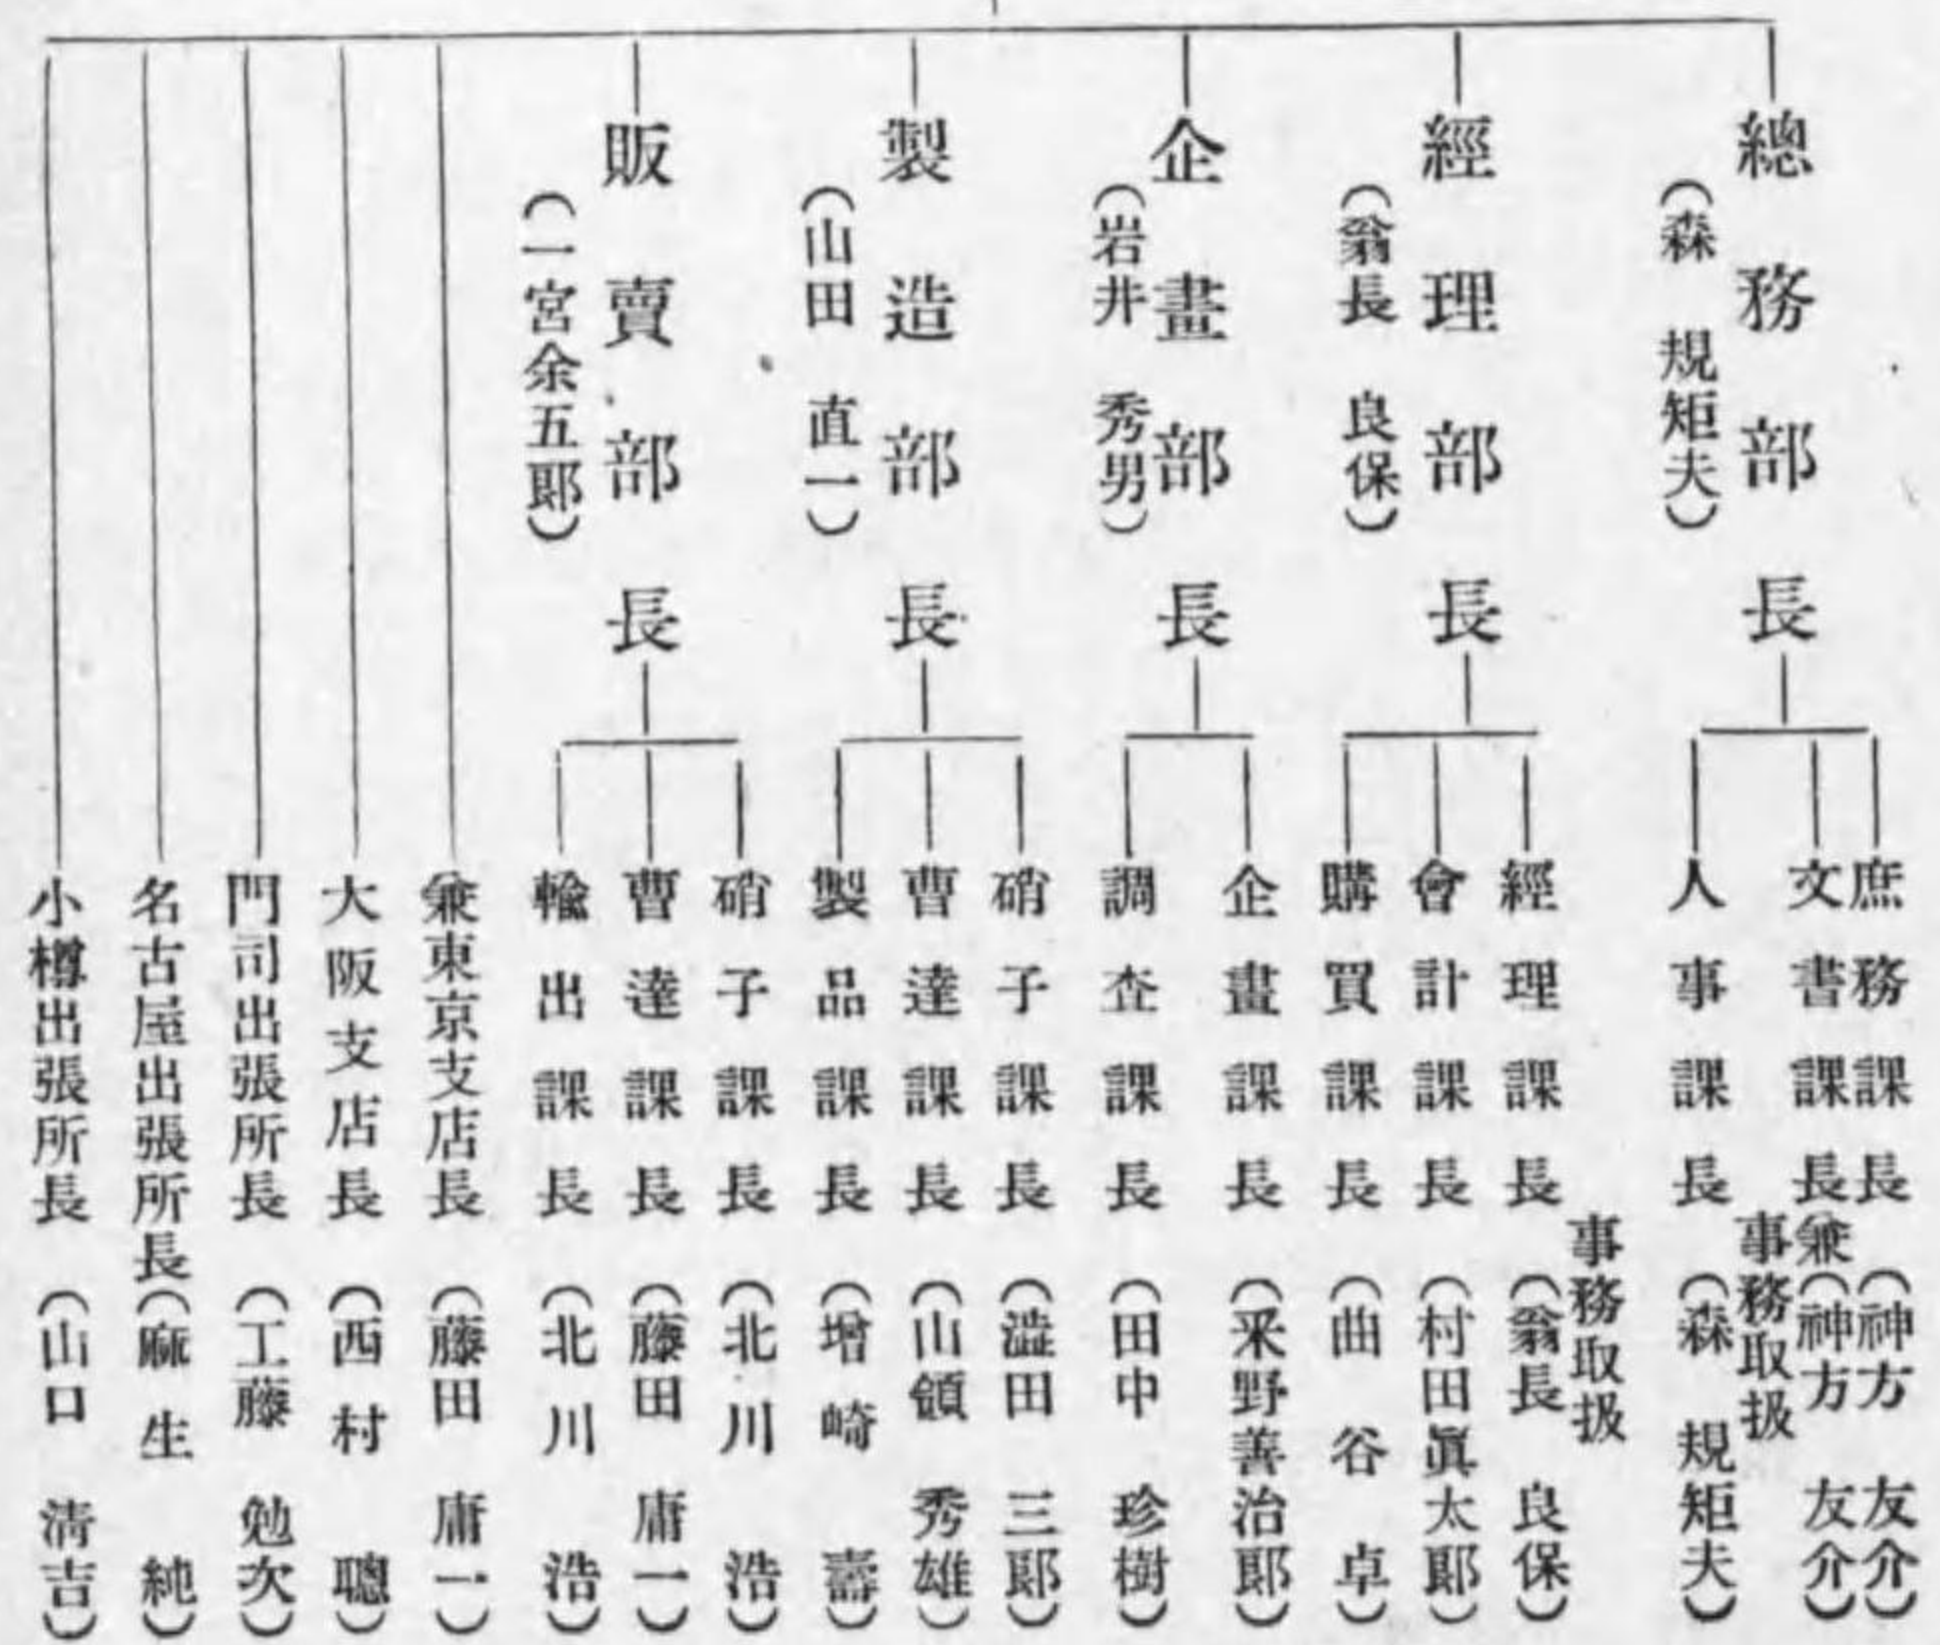 總務部長
（森 規矩夫）
庶務課長（神方 友介）
文書課長㒹（神方 友介）
事務取扱
人事課長（森 規矩夫）
經理部長
（翁長 良保）
事務取扱
經理課長（翁長 良保）
會計課長（村田眞太郎）
購買課長（曲谷 卓）
企畫部長
（岩井 秀男）
企畫課長（釆野善治郎）
調查課長（田中 珍樹）
製造部長
（山田 直一）
硝子課長（澁田 三郎）
曹達課長（山領 秀雄）
製品課長（增崎 壽）
販賣部長
（一宮余五郎）
硝子課長（北川 浩）
曹達課長（藤田 庸一）
輸出課長（北川 浩）
兼東京支店長（藤田 庸一）
大阪支店長（西村 聰）
門司出張所長（工藤 勉次）
名古屋出張所長（麻生 純）
小樽出張所長（山口 淸吉）